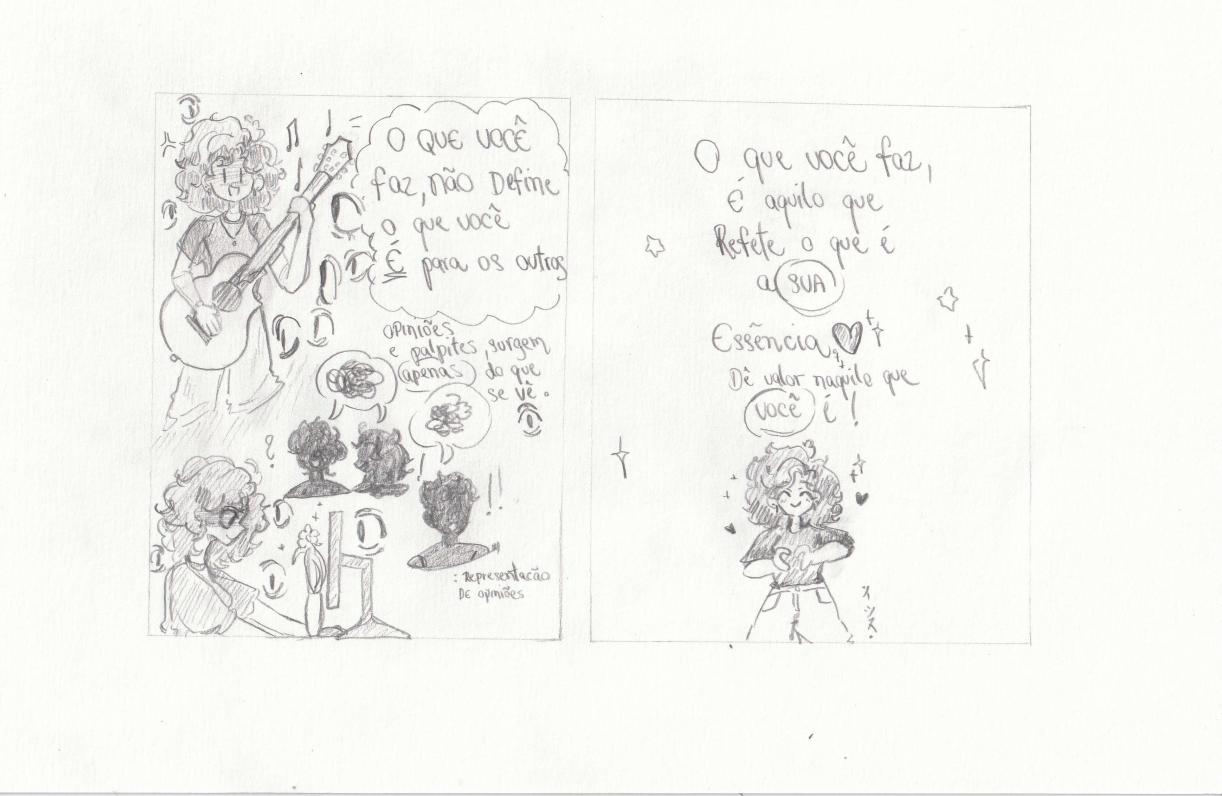 O QUE VOCÊ
faz, não Define
o que você
É para os outros
OPINIÕES
e palpites, surgem
apenas do que
se vê.
?
!
!!
: Representação
DE opiniões
O que você faz,
É aquilo que
Refete o que é
a SUA
Essência
Dê valor naquilo que
você é!